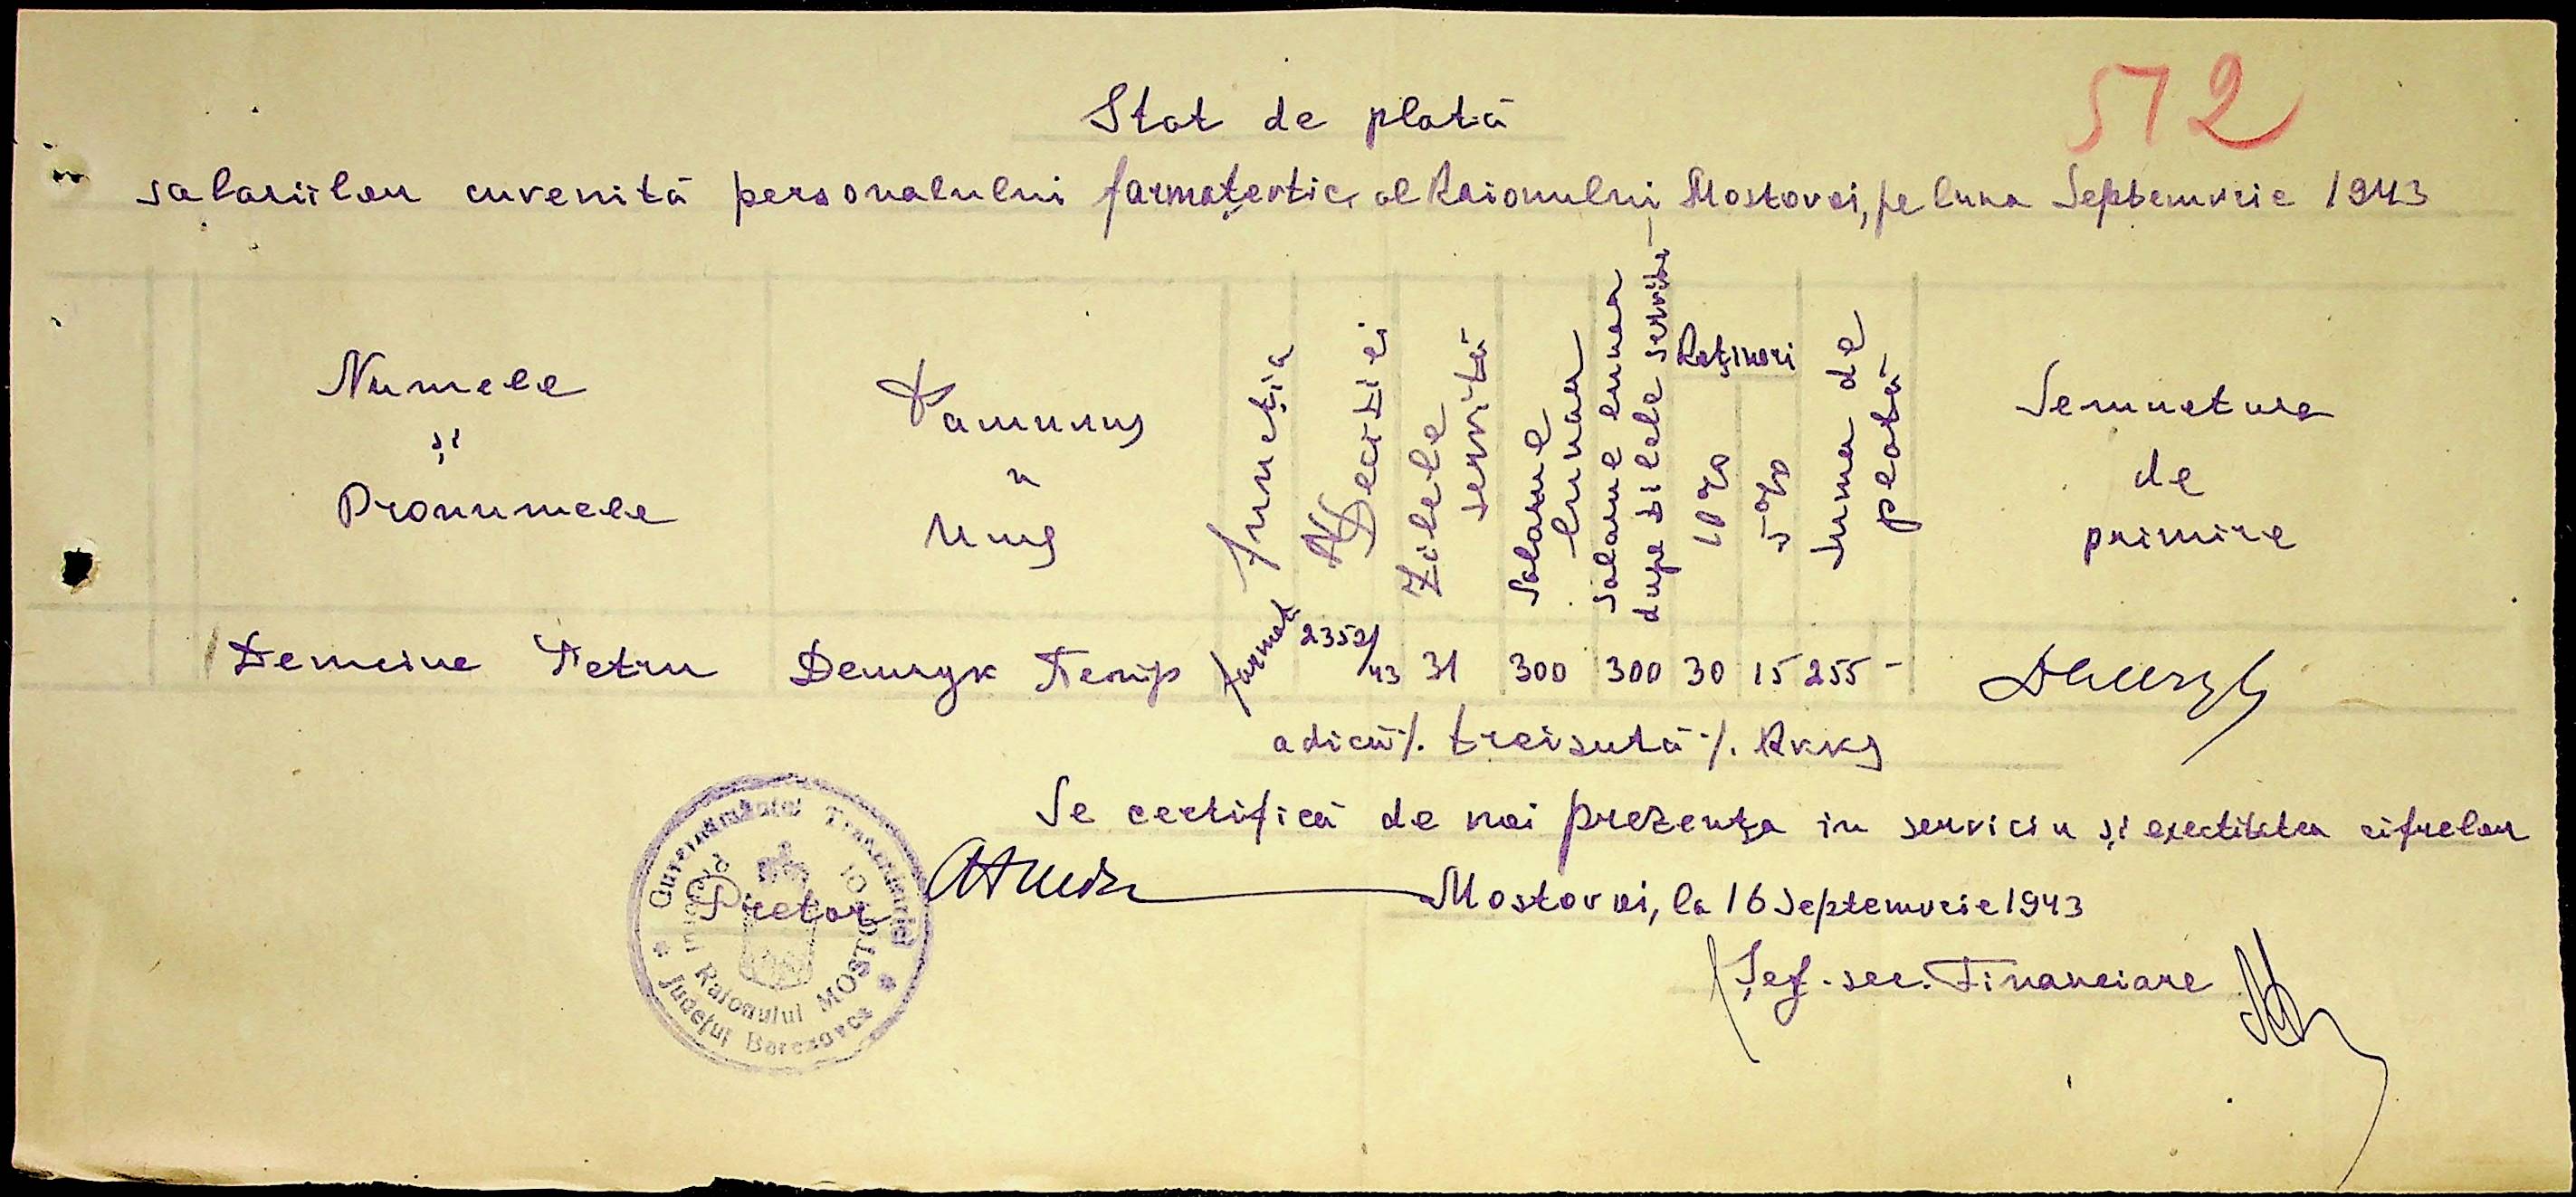 572
Stat de plată
salariilor cuvenită personalului farmatevtic al Raionului Mostovoi, pe luna Septemvrie 1943
Numele
și
Pronumele
Фамилия
и
Имя
Funcția
№ Deciziei
Zilele
servită
Salariul
lunar
Salariul lunar
dupe zilele servite
Rețineri
10%
5%
Suma de
plată
Semnetura
de
primire
1 Demciuc Petru Демчук Петр farmat. 2352/43 31 300 300 30 15 255 -
adică ./. treisută ./. RKKS
Se certifică de noi prezența in serviciu și exectitatea cifrelor
Mostovoi, la 16 Septemvrie 1943
Pretor
Șef. sec. Financiare
Guvernământul Transnistriei
Pretura Raionului MOSTOVOI
Județul Berezovca